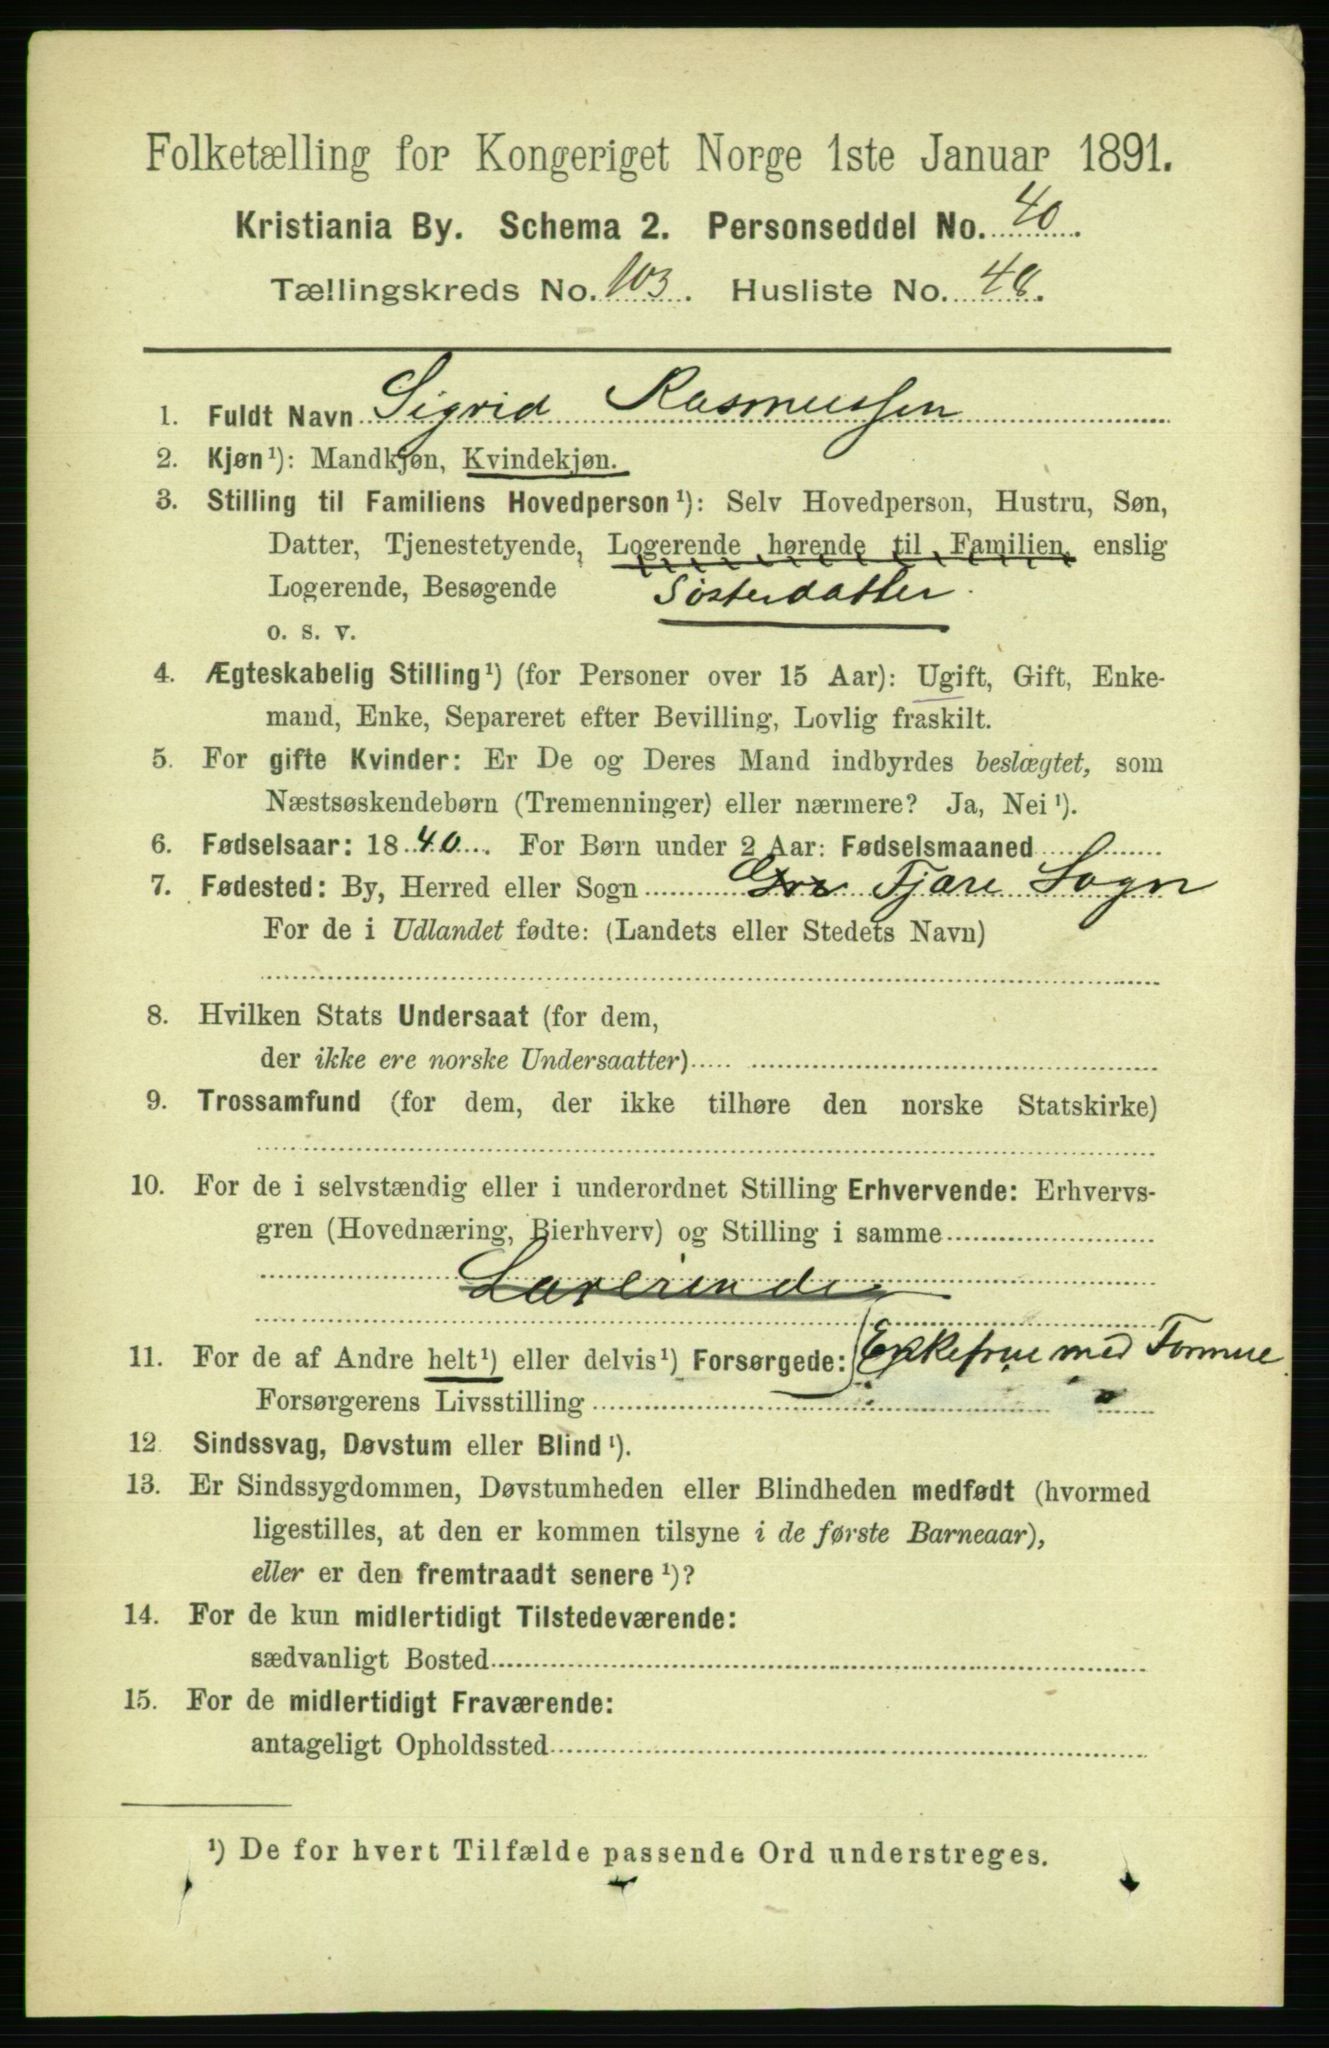 Folketælling for Kongeriget Norge 1ste Januar 1891.
Kristiania By. Schema 2. Personseddel No. 40.
Tællingskreds No. 103. Husliste No. 48.
1. Fuldt Navn Sigrid Rasmussen
2. Kjøn¹): Mandkjøn, Kvindekjøn.
3. Stilling til Familiens Hovedperson¹): Selv Hovedperson, Hustru, Søn,
Datter, Tjenestetyende, Logerende hørende til Familien, enslig
Logerende, Besøgende Søsterdatter.
o. s. v.
4. Ægteskabelig Stilling¹) (for Personer over 15 Aar): Ugift, Gift, Enke-
mand, Enke, Separeret efter Bevilling, Lovlig fraskilt.
5. For gifte Kvinder: Er De og Deres Mand indbyrdes beslægtet, som
Næstsøskendebørn (Tremenninger) eller nærmere? Ja, Nei¹).
6. Fødselsaar: 1840. For Børn under 2 Aar: Fødselsmaaned
7. Fødested: By, Herred eller Sogn Tjøre Sogn
For de i Udlandet fødte: (Landets eller Stedets Navn)
8. Hvilken Stats Undersaat (for dem,
der ikke ere norske Undersaatter)
9. Trossamfund (for dem, der ikke tilhøre den norske Statskirke)
10. For de i selvstændig eller i underordnet Stilling Erhvervende: Erhvervs-
gren (Hovednæring, Bierhverv) og Stilling i samme
Lærerinde
11. For de af Andre helt¹) eller delvis¹) Forsørgede: Enkefrue med Formue
Forsørgerens Livsstilling
12 Sindssvag, Døvstum eller Blind¹).
13. Er Sindssygdommen, Døvstumheden eller Blindheden medfødt (hvormed
ligestilles, at den er kommen tilsyne i de første Barneaar),
eller er den fremtraadt senere¹)?
14. For de kun midlertidigt Tilstedeværende:
sædvanligt Bosted
15. For de midlertidigt Fraværende:
antageligt Opholdssted
¹) De for hvert Tilfælde passende Ord understreges.